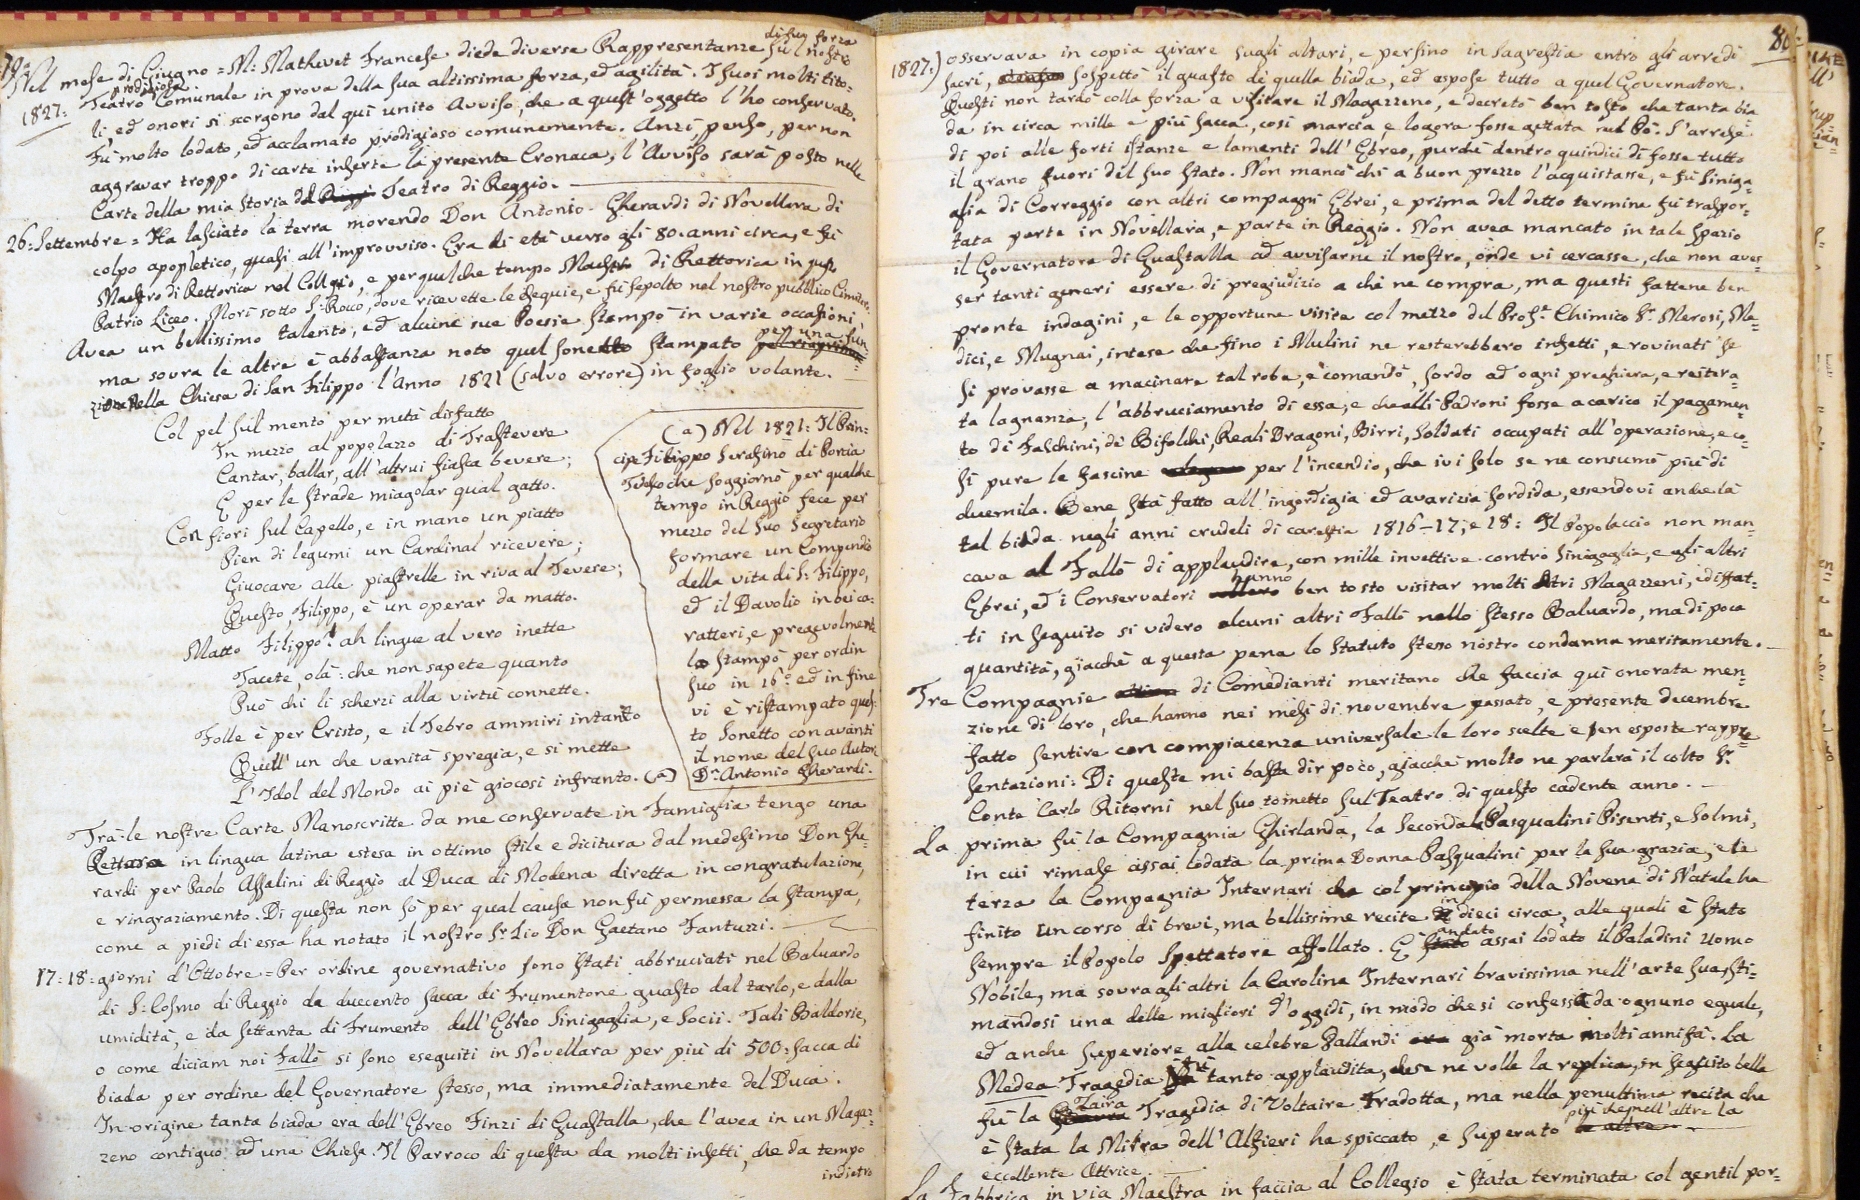 79=
Nel mese di Giugno = M: Mathevet Francese diede diverse Rappresentanze di sua forza sul nostro
1827:
Teatro Comunale in prova della sua prodigiosa altissima forza, ed agilità. I suoi molti tito-
li ed onori si scorgono dal quì unito Avviso, che a quest'oggetto l'ho conservato.
Fù molto lodato, ed acclamato prodigioso comunemente. Anzi penso, per non
aggravar troppo di carte inserte la presente Cronaca, l'Avviso sarà posto nelle
Carte della mia Storia del Teatro di Reggio.
26: Settembre = Ha lasciato la terra morendo Don Antonio Gherardi di Novellara di
colpo apopletico, quasi all'improvviso. Era di età verso gli 80. anni circa, e fù
Maestro di Rettorica nel Collegio, e per qualche tempo Maestro di Rettorica in questo
Patrio Liceo. Morì sotto S. Rocco, dove ricevette le esequie, e fù sepolto nel nostro pubblico Cimitero.
Avea un bellissimo talento, ed alcune sue Poesie stampò in varie occasioni,
ma sovra le altre è abbastanza noto quel sonetto stampato per una fun-
zione nella Chiesa di San Filippo l'Anno 1821 (salvo errore) in foglio volante.
Col pel sul mento per metà disfatto
In mezzo al popolazzo di Trastevere
Cantar, ballar, all'altrui fiasca bevere;
E per le strade miagolar qual gatto.
Con fiori sul capello, e in mano un piatto
Pien di legumi un Cardinal ricevere;
Giuocare alle piastrelle in riva al Tevere;
Questo, Filippo, è un operar da matto.
Matto Filippo? ah lingue al vero inette
Tacete, olà: che non sapete quanto
Può chi li scherzi alla virtù connette.
Folle è per Cristo, e il Tebro ammiri intanto
Quell'un che vanità spregia, e si mette
L'Idol del Mondo ai piè giocosi infranto. (a)
(a) Nel 1821: Il Prin-
cipe Filippo Serafino di Porcia
Tedesco che soggiornò per qualche
tempo in Reggio fece per
mezzo del suo Segretario
formare un Compendio
della vita di S. Filippo,
ed il Davolio in bei ca-
ratteri, e pregevolmente
lo stampò per ordin
suo in 16.º ed in fine
vi è ristampato ques-
to sonetto con avanti
il nome del suo Autore
D. Antonio Gherardi.
Trà le nostre Carte Manoscritte da me conservate in Famiglia tengo una
in lingua latina estesa in ottimo stile e dicitura dal medesimo Don Ghe-
rardi per Paolo Assalini di Reggio al Duca di Modena diretta in congratulazione,
e ringraziamento. Di questa non sò per qual causa non fù permessa la stampa,
come a piedi di essa ha notato il nostro Sr. Zio Don Gaetano Fantuzzi.
17: 18: giorni d'Ottobre = Per ordine governativo sono stati abbruciati nel Baluardo
di S. Cosmo di Reggio da duccento sacca di Frumentone guasto dal tarlo, e dalla
umidità, e da settanta di Frumento dell'Ebreo Sinigaglia, e Socii. Tali Baldorie,
o come diciam noi Fallò si sono eseguiti in Novellara per più di 500: sacca di
biada per ordine del Governatore stesso, ma immediatamente del Duca.
In origine tanta biada era dell'Ebreo Finzi di Guastalla, che l'avea in un Magaz-
zeno contiguo ad una Chiesa. Il Parroco di questa da molti insetti, che da tempo
indietro
80=
1827:) osservava in copia girare sugli altari, e persino in Sagrestia entro gli arredi
sacri, sospettò il guasto di quella biada, ed espose tutto a quel Governatore.
Questi non tardò colla forza a visitare il Magazzeno, e decretò ben tosto che tanta bia
da in circa mille e più sacca, così marcia, e logora fosse gettata nel Pò. S'arrese
di poi alle forti istanze e lamenti dell'Ebreo, purchè dentro quindici dì fosse tutto
il grano fuori del suo Stato. Non mancò chi a buon prezzo l'acquistasse, e fù Siniga-
glia di Correggio con altri compagni Ebrei, e prima del detto termine fù traspor-
tata parte in Novellara, e parte in Reggio. Non avea mancato in tale spazio
il Governatore di Guastalla ad avvisarne il nostro, onde vi cercasse, che non aves-
ser tanti generi essere di pregiudizio a chi ne compra, ma questi fattene ben
pronte indagini, e le opportune visite col mezzo del Profr. Chimico Sr. Merosi, Me-
dici, e Mugnai, intese che fino i Mulini ne resterebbero infetti, e rovinati se
si provasse a macinare tal roba, e comandò, sordo ad ogni preghiera, e reitera-
ta lagnanza, l'abbruciamento di essa, e che alli Padroni fosse a carico il pagamen-
to di Facchini, di Bifolchi, Reali Dragoni, Birri, Soldati occupati all'operazione, e co-
sì pure le fascine per l'incendio, che ivi solo se ne consumò più di
duemila. Bene stà fatto all'ingordigia ed avarizia sordida, essendovi anche là
tal biada negli anni crudeli di carestia 1816-17; e 18: Il Popolaccio non man-
cava al Fallò di applaudire, con mille invettive contro Sinigaglia, e gli altri
Ebrei, ed i Conservatori hanno ben tosto visitar molti altri Magazzeni, ed effet-
ti in seguito si videro alcuni altri Fallò nello stesso Baluardo, ma di poca
quantità, giacchè a questa pena lo Statuto stesso nostro condanna meritamente.
Tre Compagnie di Comedianti meritano che faccia quì onorata men-
zione di loro, che hanno nei mesi di novembre passato, e presente decembre
fatto sentire con compiacenza universale le loro scelte e ben esposte rappre-
sentazioni: Di queste mi basta dir poco, giacchè molto ne parlerà il colto Sr.
Conte Carlo Ritorni nel suo tometto sul Teatro di questo cadente anno.
La prima fù la Compagnia Ghirlanda, la seconda Pasqualini Pisenti, e Solmi,
in cui rimase assai lodata la prima Donna Pasqualini per la sua grazia, e la
terza la Compagnia Internari che col principio della Novena di Natale ha
finito un corso di brevi, ma bellissime recite in dieci circa, alle quali è stato
sempre il Popolo Spettatore affollato. È andato assai lodato il Paladini uomo
Nobile, ma sovra gli altri la Carolina Internari bravissima nell'arte sua sti-
mandosi una delle migliori d'oggidì, in modo che si confessa da ognuno eguale,
ed anche superiore alla celebre Pallandi già morta molti anni fà. La
Medea Tragedia fù tanto applaudita, che se ne volle la replica, in seguito bella
fù la Zaira Tragedia di Voltaire tradotta, ma nella penultima recita che
è stata la Mirra dell'Alfieri ha spiccato, e superato più che nell'altre la
eccellente Attrice.
La Fabbrica in via Maestra in faccia al Collegio è stata terminata col gentil por-